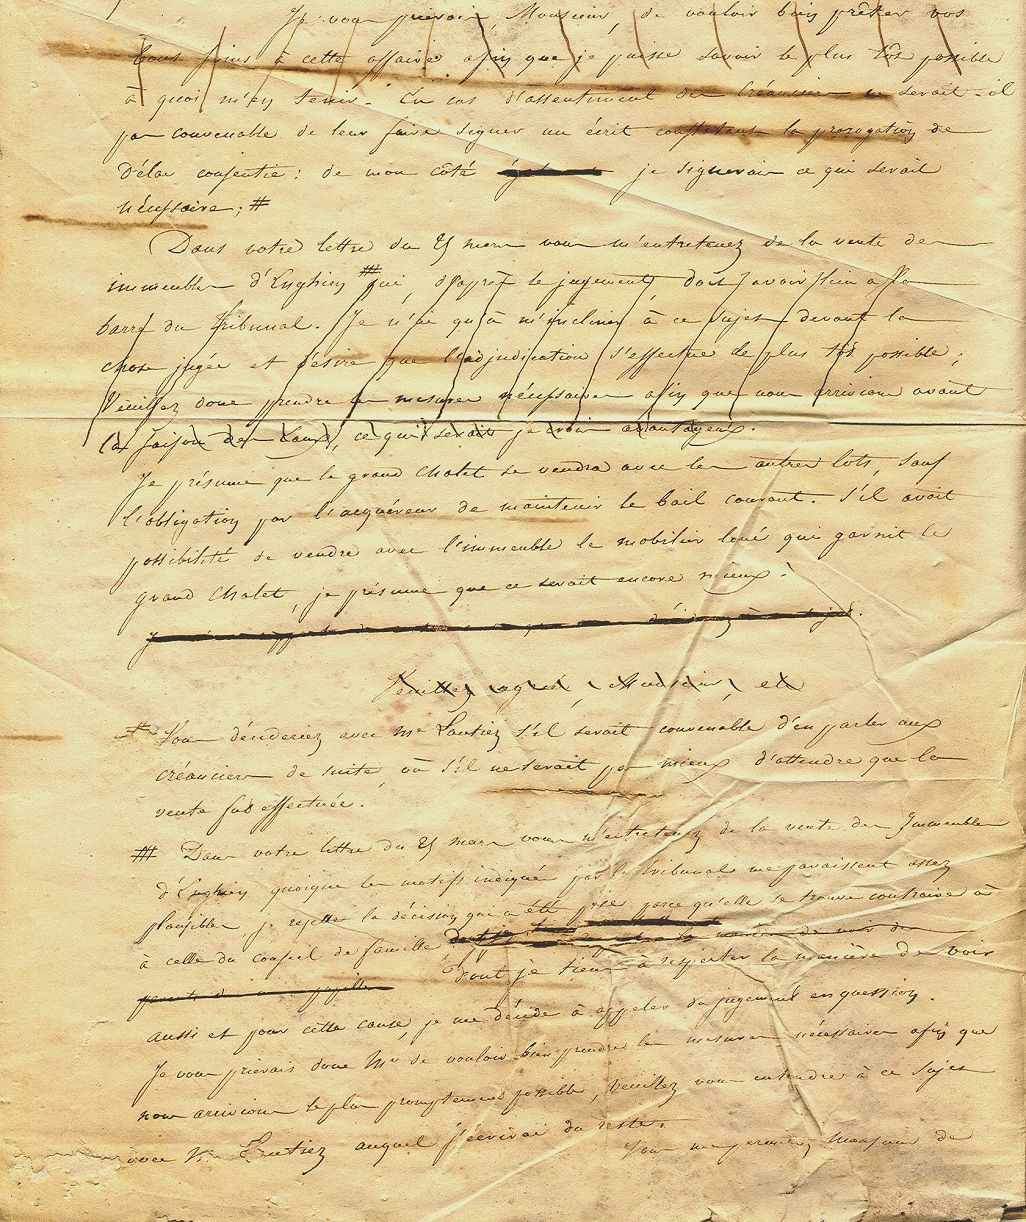 Je vous prierai, Monsieur, de vouloir bien prêter vos
bons soins à cette affaire afin que je puisse savoir le plus tôt possible
à quoi m'en tenir. En cas d'assentiment des Créanciers ne serait-il
pas convenable de leur faire signer un écrit constatant la prorogation de
délai consentie: de mon côté je signerais ce qui serait
nécessaire; #
Dans votre lettre du 25 mars vous m'entretenez de la vente des
immeubles d'Enghien # qui, d'après le jugement doit avoir lieu à la
barre du Tribunal. Je n'ai qu'à m'incliner à ce sujet devant la
chose jugée et désire que l'adjudication s'effectue le plus tôt possible;
Veuillez donc prendre les mesures nécessaires afin que nous arrivions avant
la saison des Eaux, ce qui serait je crois avantageux.
Je présume que le grand Chalet se vendra avec les autres lots, sauf
l'obligation par l'acquéreur de maintenir le bail courant. S'il avait
possibilité de vendre avec l'immeuble le mobilier loué qui garnit le
grand Chalet, je présume que ce serait encore mieux.
Veuillez agréer, Monsieur, etc
# Vous déciderez avec Me s'il serait convenable d'en parler aux
créanciers de suite, ou s'il ne serait pas mieux d'attendre que la
vente fut effectuée.
# Dans votre lettre du 25 mars vous m'entretenez de la vente des Immeubles
d'Enghien quoique les motifs indiqués par le Tribunal me paraissent assez
plausibles, je rejette la décision qui a été prise parce qu'elle se trouve contraire à
à celle du Conseil de famille la manière de voir des
dont je tiens à respecter la manière de voir
aussi et pour cette cause, je me décide à appeler du jugement en question.
Je vous prierais donc Mr de vouloir bien prendre les mesures nécessaires afin que
nous arrivions le plus promptement possible, veuillez vous entendre à ce sujet
avec Mr auquel j'écrirai du reste.
Vous me permettrez Monsieur de